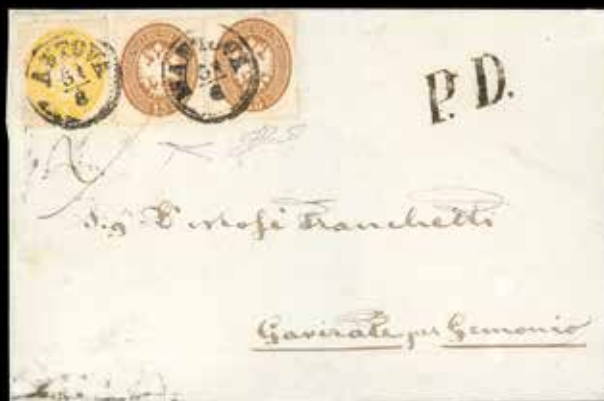 MANTOVA
31
8
MANTOVA
31
8
P. D.
Sig. Dr Mosè Franchetti
Gavirate per Gemonio